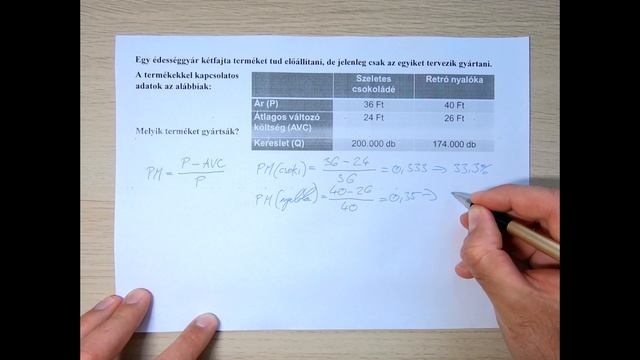 Egy édességgyár kétfajta terméket tud előállítani, de jelenleg csak az egyiket tervezik gyártani.
A termékekkel kapcsolatos
adatok az alábbiak:
Szeletes csokoládé Retró nyalóka
Ár (P) 36 Ft 40 Ft
Átlagos változó költség (AVC) 24 Ft 26 Ft
Kereslet (Q) 200.000 db 174.000 db
Melyik terméket gyártsák?
PM = P - AVC / P
PM (csoki) = 36 - 24 / 36 = 0,333 ⇒ 33,3%
PM (nyalóka) = 40 - 26 / 40 = 0,35 →